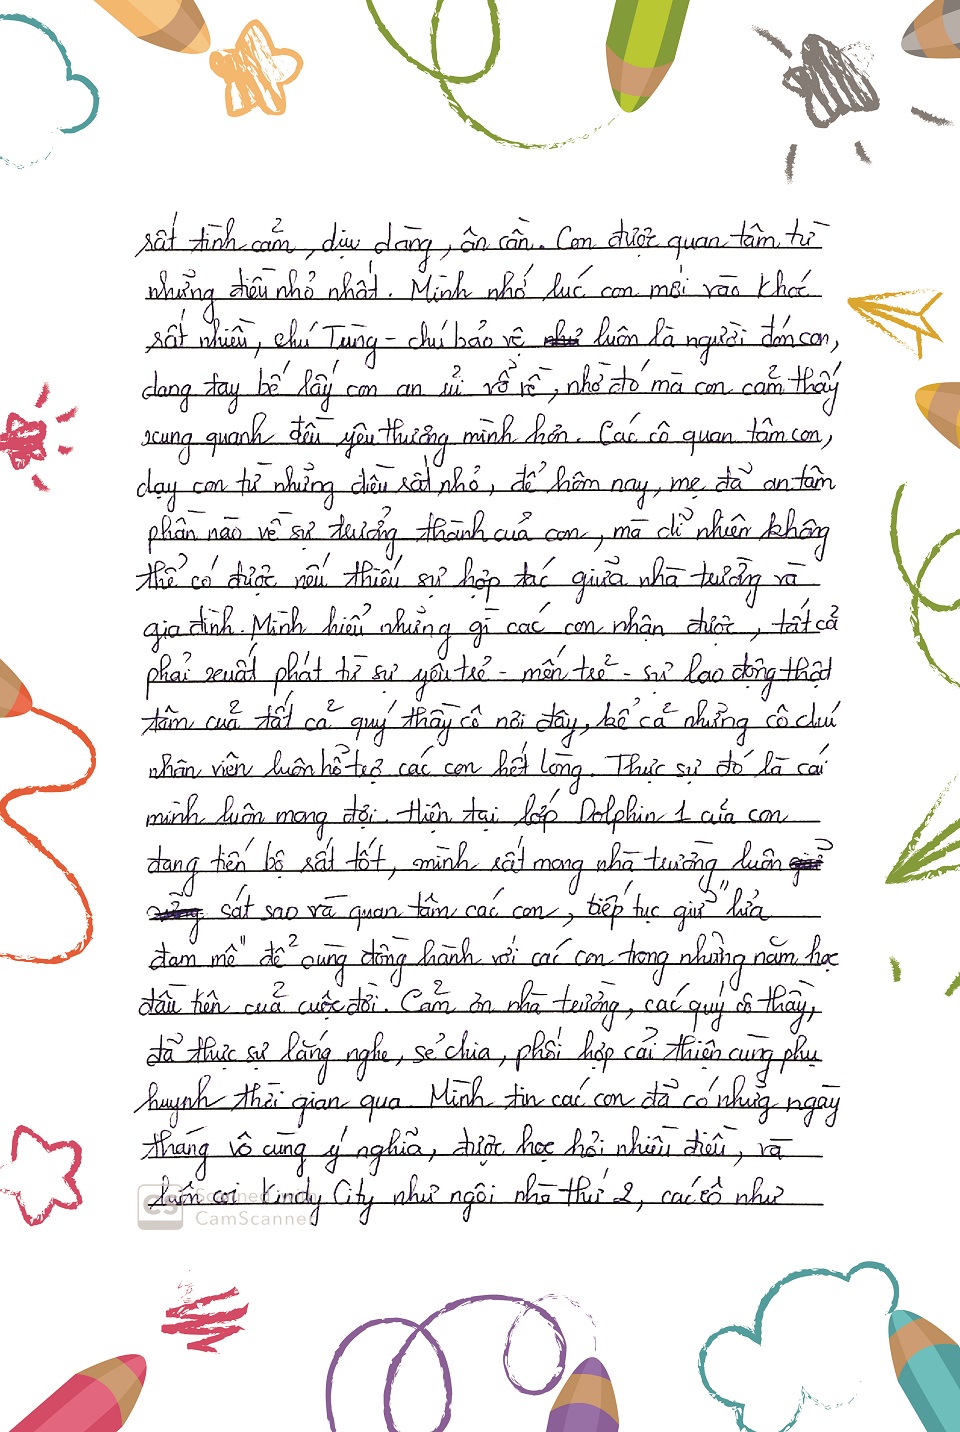 rất tình cảm, dịu dàng, ân cần. Con được quan tâm từ
những điều nhỏ nhất. Mình nhớ lúc con mới vào khóc
rất nhiều, chú Tùng - chú bảo vệ như luôn là người đón con,
dang tay bế lấy con an ủi vỗ về, nhờ đó mà con cảm thấy
xung quanh đều yêu thương mình hơn. Các cô quan tâm con,
dạy con từ những điều rất nhỏ, để hôm nay, mẹ đã an tâm
phần nào về sự trưởng thành của con, mà dĩ nhiên không
thể có được nếu thiếu sự hợp tác giữa nhà trường và
gia đình. Mình hiểu những gì các con nhận được, tất cả
phải xuất phát từ sự yêu trẻ - mến trẻ - sự lao động thật
tâm của tất cả quý thầy cô nơi đây, kể cả những cô chú
nhân viên luôn hỗ trợ các con hết lòng. Thực sự đó là cái
mình luôn mong đợi. Hiện tại lớp Dolphin 1 của con
đang tiến bộ rất tốt, mình rất mong nhà trường luôn
sát sao và quan tâm các con, tiếp tục giữ "lửa
đam mê" để cùng đồng hành với các con trong những năm học
đầu tiên của cuộc đời. Cảm ơn nhà trường, các quý cô thầy,
đã thực sự lắng nghe, sẻ chia, phối hợp cải thiện cùng phụ
huynh thời gian qua. Mình tin các con đã có những ngày
tháng vô cùng ý nghĩa, được học hỏi nhiều điều, và
luôn coi Kindy City như ngôi nhà thứ 2, các cô như
CS Scanned with
CamScanner